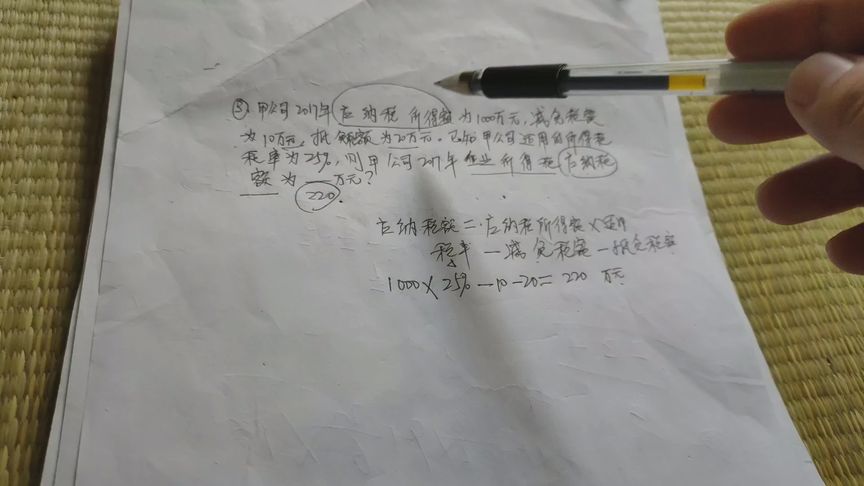 ③. 甲公司2017年应纳税所得额为1000万元,减免税额
为10万元,抵免额为20万元。已知甲公司适用的所得税
税率为25%,则甲公司2017年企业所得税应纳税
额为 万元?
220.
应纳税额=应纳税所得额×适用
税率-减免税额-抵免税额
1000×25%-10-20=220 万元